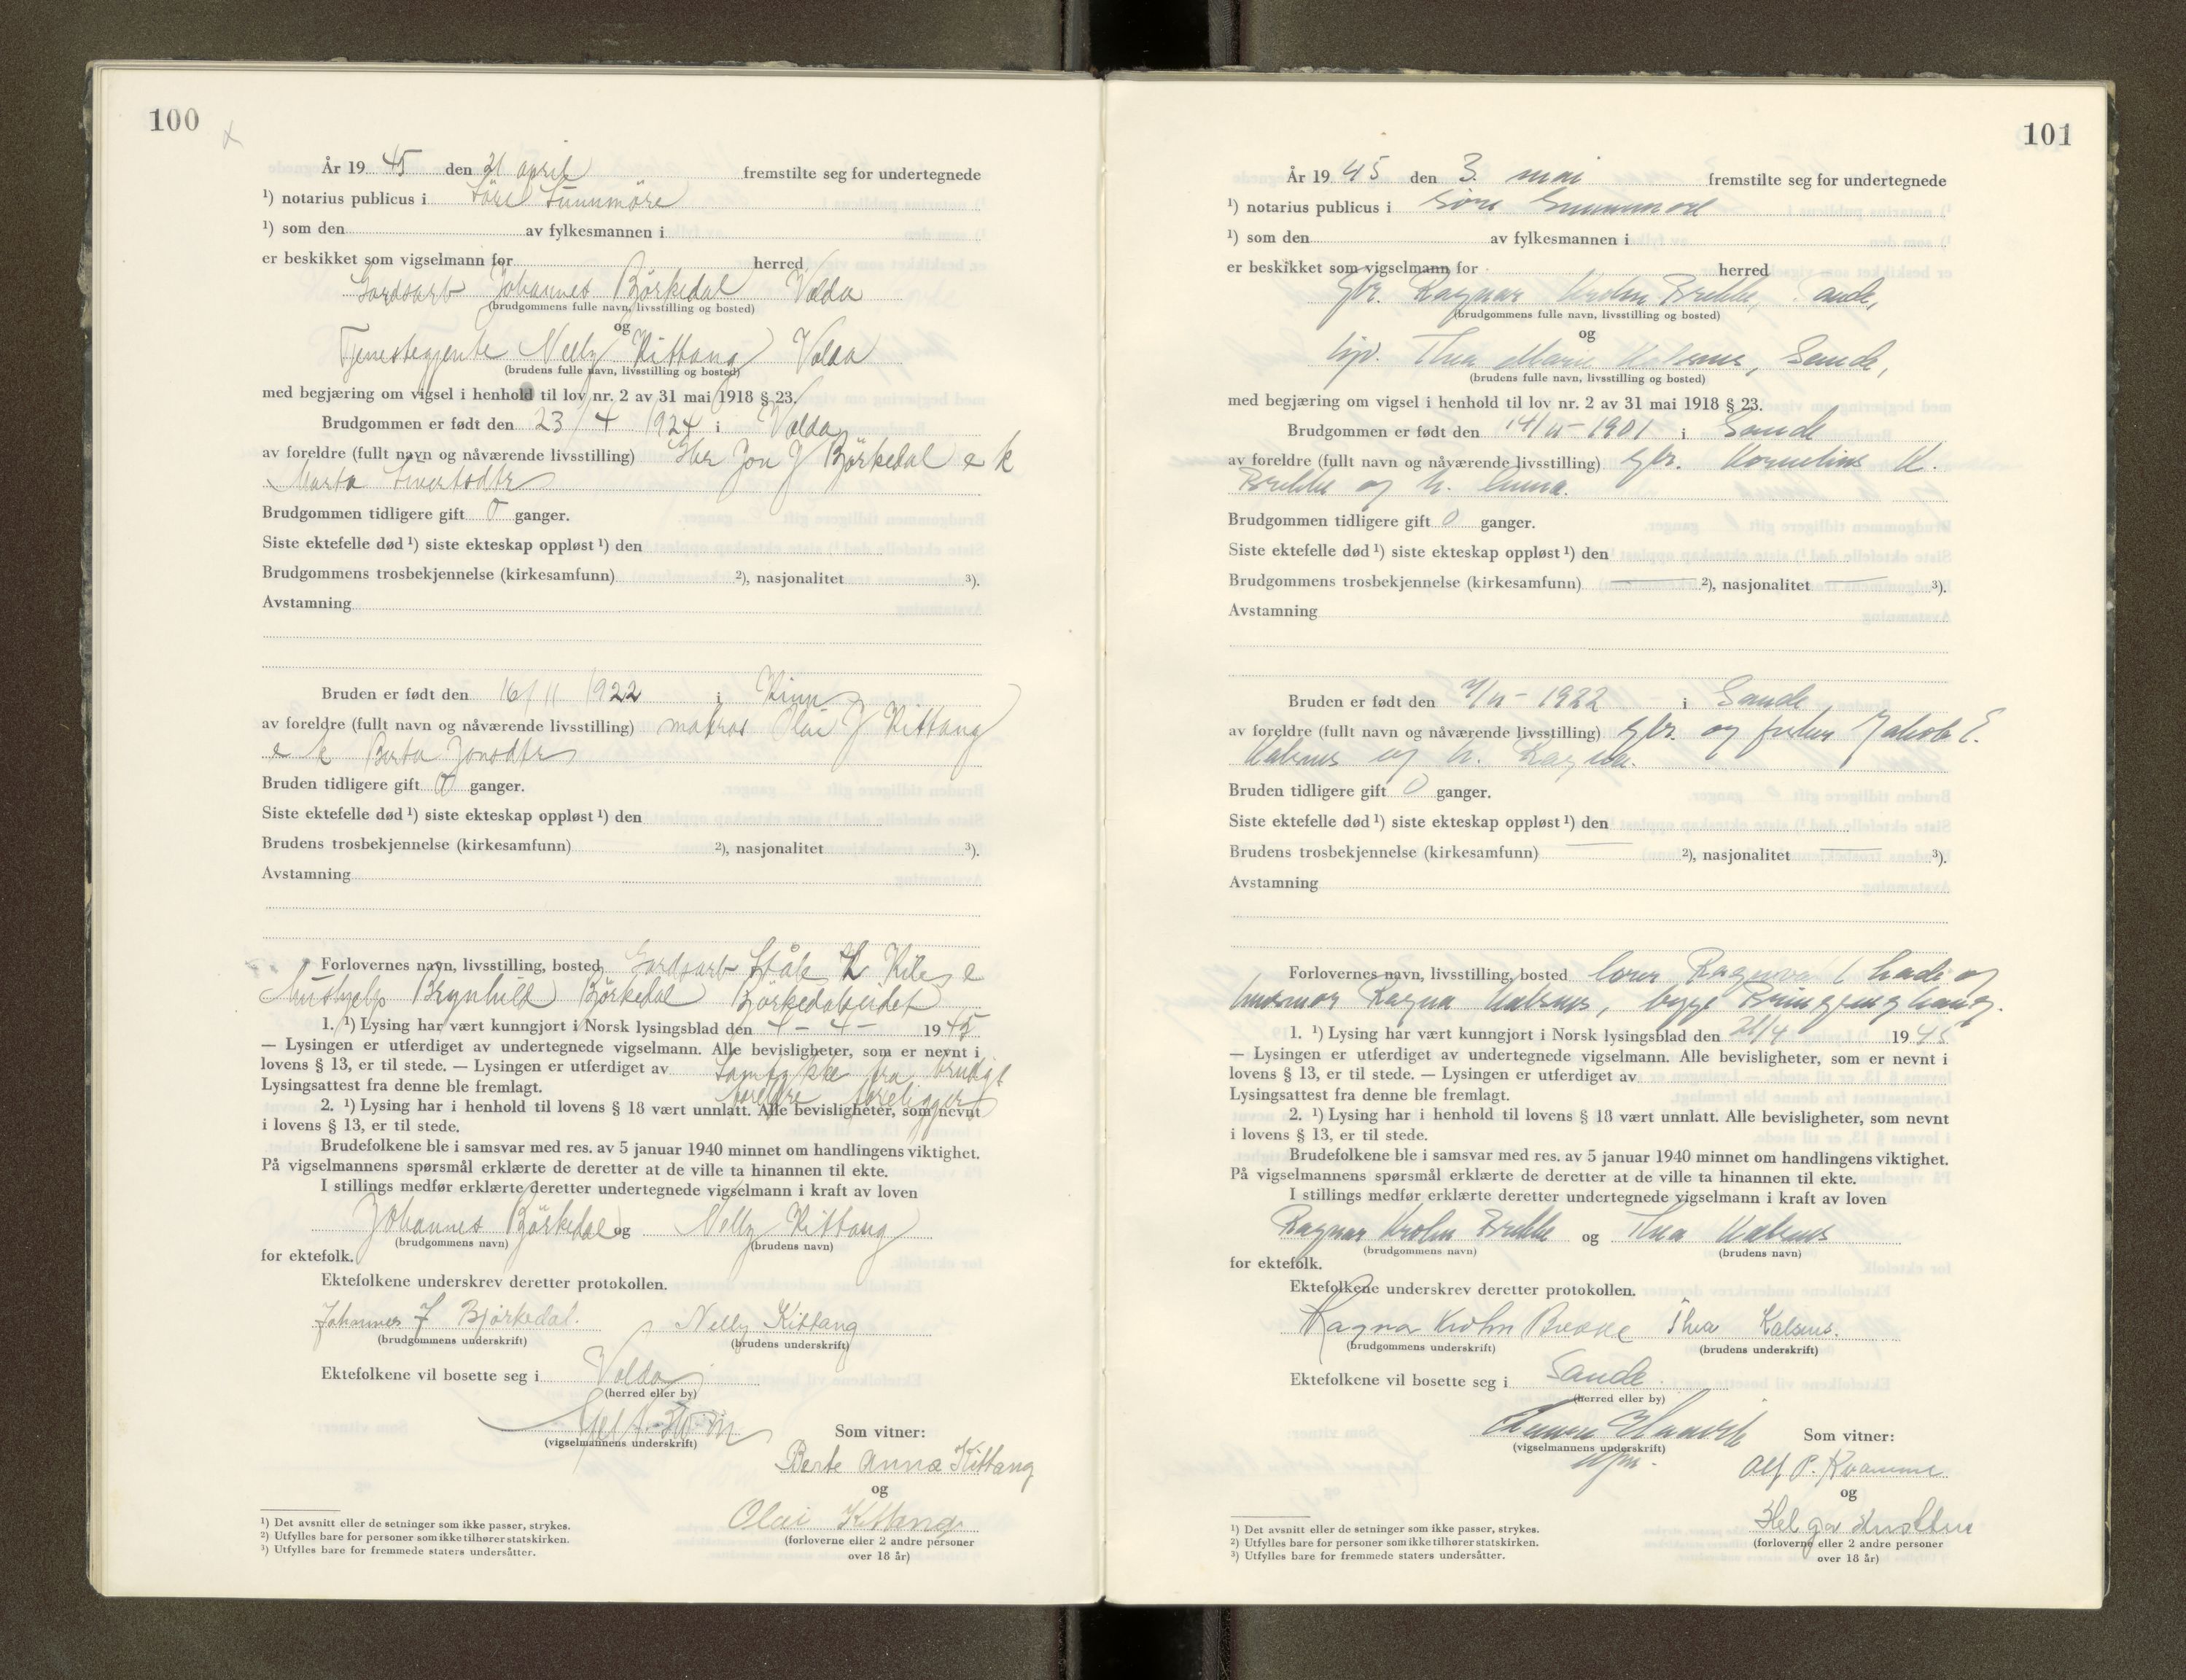 100
År 19 45 den 21 april fremstilte seg for undertegnede
¹) notarius publicus i Söre Sunnmöre
¹) som den av fylkesmannen i
er beskikket som vigselmann for herred
Gardsarb Johannes Börkedal Volda
(brudgommens fulle navn, livsstilling og bosted)
og
Tjenestegjente Nelly Kittang Volda
(brudens fulle navn, livsstilling og bosted)
med begjæring om vigsel i henhold til lov nr. 2 av 31 mai 1918 § 23.
Brudgommen er født den 23/4 1924 i Volda
av foreldre (fullt navn og nåværende livsstilling) Gbr Jon J Börkedal e k
Marta Sivertsdtr
Brudgommen tidligere gift 0 ganger.
Siste ektefelle død ¹) siste ekteskap oppløst ¹) den
Brudgommens trosbekjennelse (kirkesamfunn) ²), nasjonalitet ³).
Avstamning
Bruden er født den 16/11 1922 i Kinn
av foreldre (fullt navn og nåværende livsstilling) matros Olai J Kittang
e k Berta Jonsdtr
Bruden tidligere gift 0 ganger.
Siste ektefelle død ¹) siste ekteskap oppløst ¹) den
Brudens trosbekjennelse (kirkesamfunn) ²), nasjonalitet ³).
Avstamning
Forlovernes navn, livsstilling, bosted Gardsarb Ståle K Kile e
hushjelp Brynhild Börkedal Börkedalseidet
1. ¹) Lysing har vært kunngjort i Norsk lysingsblad den 4 - 4 - 1945
— Lysingen er utferdiget av undertegnede vigselmann. Alle bevisligheter, som er nevnt i
lovens § 13, er til stede. — Lysingen er utferdiget av Samtykke fra brudgs
Lysingsattest fra denne ble fremlagt. foreldre foreligger
2. ¹) Lysing har i henhold til lovens § 18 vært unnlatt. Alle bevisligheter, som nevnt
i lovens § 13, er til stede.
Brudefolkene ble i samsvar med res. av 5 januar 1940 minnet om handlingens viktighet.
På vigselmannens spørsmål erklærte de deretter at de ville ta hinannen til ekte.
I stillings medfør erklærte deretter undertegnede vigselmann i kraft av loven
Johannes Börkedal og Nelly Kittang
(brudgommens navn) (brudens navn)
for ektefolk.
Ektefolkene underskrev deretter protokollen.
Johannes J Bjørkedal. Nelly Kittang
(brudgommens underskrift) (brudens underskrift)
Ektefolkene vil bosette seg i Volda
(herred eller by)
(vigselmannens underskrift) Som vitner:
Berte Anna Kittang
og
Olai Kittang
(forloverne eller 2 andre personer
over 18 år)
¹) Det avsnitt eller de setninger som ikke passer, strykes.
²) Utfylles bare for personer som ikke tilhører statskirken.
³) Utfylles bare for fremmede staters undersåtter.
101
År 19 45 den 3. mai fremstilte seg for undertegnede
¹) notarius publicus i Søre Sunnmøre
¹) som den av fylkesmannen i
er beskikket som vigselmann for herred
Gbr. Ragnar Krohn Brekke, Sande,
(brudgommens fulle navn, livsstilling og bosted)
og
Thea Marie Kalsnes, Sande,
(brudens fulle navn, livsstilling og bosted)
med begjæring om vigsel i henhold til lov nr. 2 av 31 mai 1918 § 23.
Brudgommen er født den 1901 i Sande
av foreldre (fullt navn og nåværende livsstilling) gbr. Kornelius K.
Brekke og h. Anna.
Brudgommen tidligere gift 0 ganger.
Siste ektefelle død ¹) siste ekteskap oppløst ¹) den
Brudgommens trosbekjennelse (kirkesamfunn) ²), nasjonalitet ³).
Avstamning
Bruden er født den 1922 i Sande
av foreldre (fullt navn og nåværende livsstilling) gbr. og fisker Jakob E.
Kalsnes og h. Ragna.
Bruden tidligere gift 0 ganger.
Siste ektefelle død ¹) siste ekteskap oppløst ¹) den
Brudens trosbekjennelse (kirkesamfunn) ²), nasjonalitet ³).
Avstamning
Forlovernes navn, livsstilling, bosted og
husmor Ragna Kalsnes, begge Bringsinghaug.
1. ¹) Lysing har vært kunngjort i Norsk lysingsblad den 21/4 1945
— Lysingen er utferdiget av undertegnede vigselmann. Alle bevisligheter, som er nevnt i
lovens § 13, er til stede. — Lysingen er utferdiget av
Lysingsattest fra denne ble fremlagt.
2. ¹) Lysing har i henhold til lovens § 18 vært unnlatt. Alle bevisligheter, som nevnt
i lovens § 13, er til stede.
Brudefolkene ble i samsvar med res. av 5 januar 1940 minnet om handlingens viktighet.
På vigselmannens spørsmål erklærte de deretter at de ville ta hinannen til ekte.
I stillings medfør erklærte deretter undertegnede vigselmann i kraft av loven
Ragnar Krohn Brekke og Thea Kalsnes
(brudgommens navn) (brudens navn)
for ektefolk.
Ektefolkene underskrev deretter protokollen.
Ragnar Krohn Brekke Thea Kalsnes.
(brudgommens underskrift) (brudens underskrift)
Ektefolkene vil bosette seg i Sande.
(herred eller by)
(vigselmannens underskrift) Som vitner:
Alf P. Kvamme
og
Helga
(forloverne eller 2 andre personer
over 18 år)
¹) Det avsnitt eller de setninger som ikke passer, strykes.
²) Utfylles bare for personer som ikke tilhører statskirken.
³) Utfylles bare for fremmede staters undersåtter.